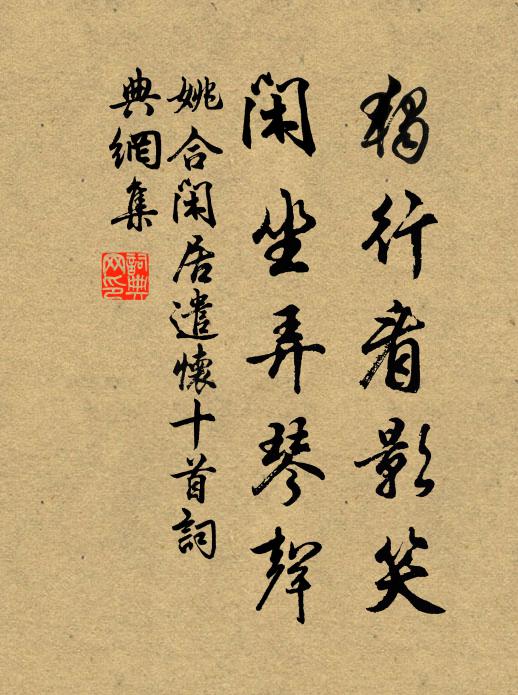 獨行看影笑
閑坐弄琴聲
姚合閑居遣懷十首詞
典網集
詞典
网印